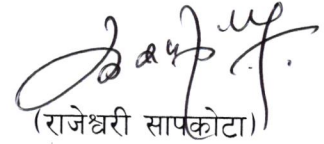 (राजेश्वरी सापकोटा)